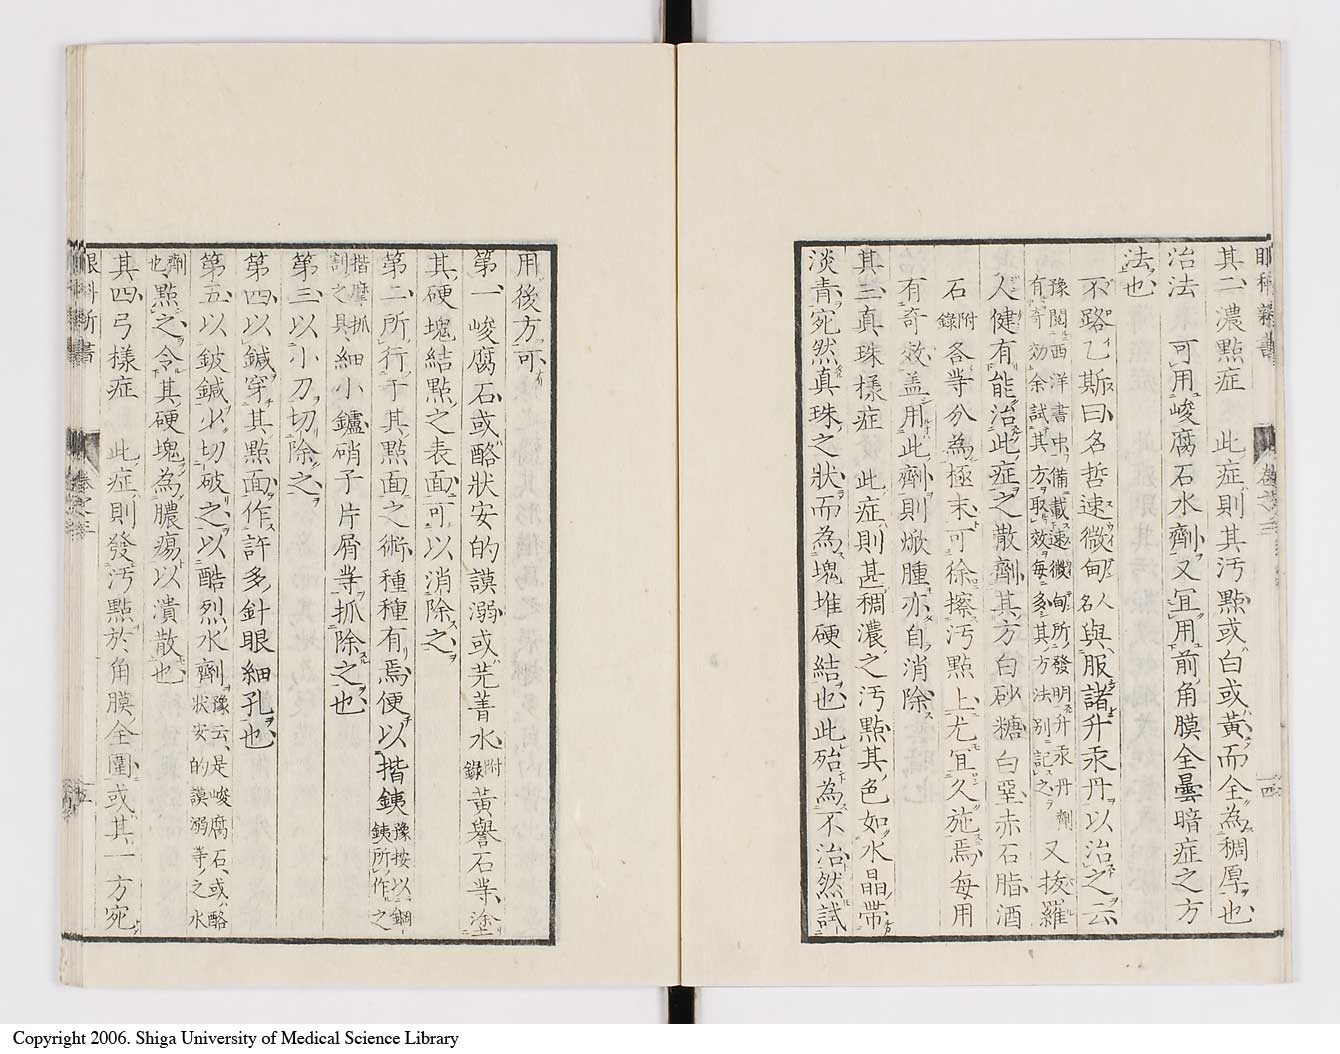 眼科新書 卷之三 十四
其二濃點症 此症則其汚點或白或黃而全為稠厚也
治法 可用峻腐石水劑又宜用前角膜全曇暗症之方
法也
不路乙斯曰名哲速微甸人名與服諸升汞丹以治之云
豫閲西洋書中備載速微甸所發明升汞丹劑
有奇効余試其方取效每多其方法別記之
又拔羅
人健有能治此症之散劑其方白砂糖白堊赤石脂酒
石附錄各等分為極末可徐擦汚點上尤宜久施焉每用
有奇效蓋用此劑則焮腫亦自消除
其三真珠樣症 此症則甚稠濃之汚點其色如水晶帶
淡青宛然真珠之狀而為塊堆硬結也此殆為不治然試
用後方可
第一 峻腐石或酪狀安的謨溺或芫菁水附錄黃礬石等塗
其硬塊結點之表面可以消除之
第二所行于其點面之術種種有焉便以揩銕
豫按以鋼銕所作之
揩摩抓割之具
細小鑢硝子片屑等抓除之也
第三以小刀切除之
第四以鍼穿其點面作許多針眼細孔也
第五以鈹鍼少切破之以酷烈水劑
豫云是峻腐石或酪狀安的謨溺等之水
劑也
點之令其硬塊為膿瘍以潰散也
其四弓樣症 此症則發汚點於角膜全圍或其一方宛
眼科新書 卷之三